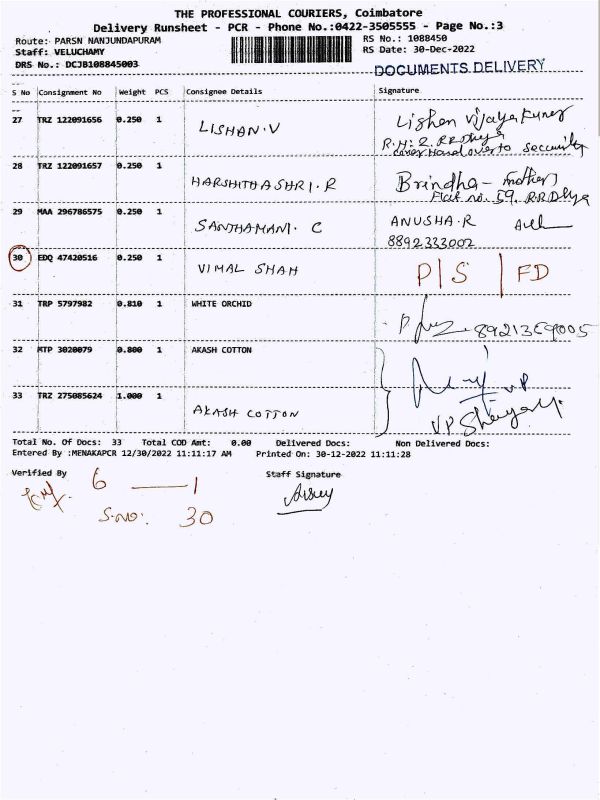 THE PROFESSIONAL COURIERS, Coimbatore
Delivery Runsheet - PCR - Phone No.:0422-3505555 - Page No.:3
Route: PARSN NANJUNDAPURAM RS No.: 1088450
Staff: VELUCHAMY RS Date: 30-Dec-2022
DRS No.: DCJB108845003
DOCUMENTS DELIVERY
S No Consignment No Weight PCS Consignee Details Signature
27 TRZ 122091656 0.250 1 LISHAN.V Lishan Vijaya Kumar
R.H: 2. R.R.Dhya
cover Hand over to security
28 TRZ 122091657 0.250 1 HARSHITHASHRI.R Brindha - (mother)
Flat no. 59. R.R.Dhya
29 MAA 296786575 0.250 1 SANTHAMANI. C ANUSHA.R
8892333002
30 EDQ 47420516 0.250 1 VIMAL SHAH P|S | FD
31 TRP 5797982 0.810 1 WHITE ORCHID
32 MTP 3020079 0.800 1 AKASH COTTON
33 TRZ 275085624 1.000 1 AKASH COTTON VP
Total No. Of Docs: 33 Total COD Amt: 0.00 Delivered Docs: Non Delivered Docs:
Entered By :MENAKAPCR 12/30/2022 11:11:17 AM Printed On: 30-12-2022 11:11:28
Verified By Staff Signature
6 — 1
S.no: 30